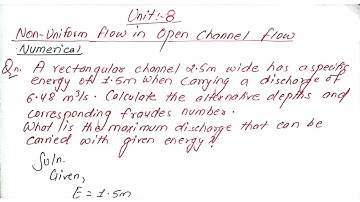 Unit:-8
Non-Uniform flow in Open Channel flow
Numerical
Qn. A rectangular channel 2.5m wide has a specific
energy of 1.5m when carrying a discharge of
6.48 m³/s. Calculate the alternative depths and
corresponding froudes number.
What is the maximum discharge that can be
carried with given energy?
Soln.
Given,
E = 1.5m